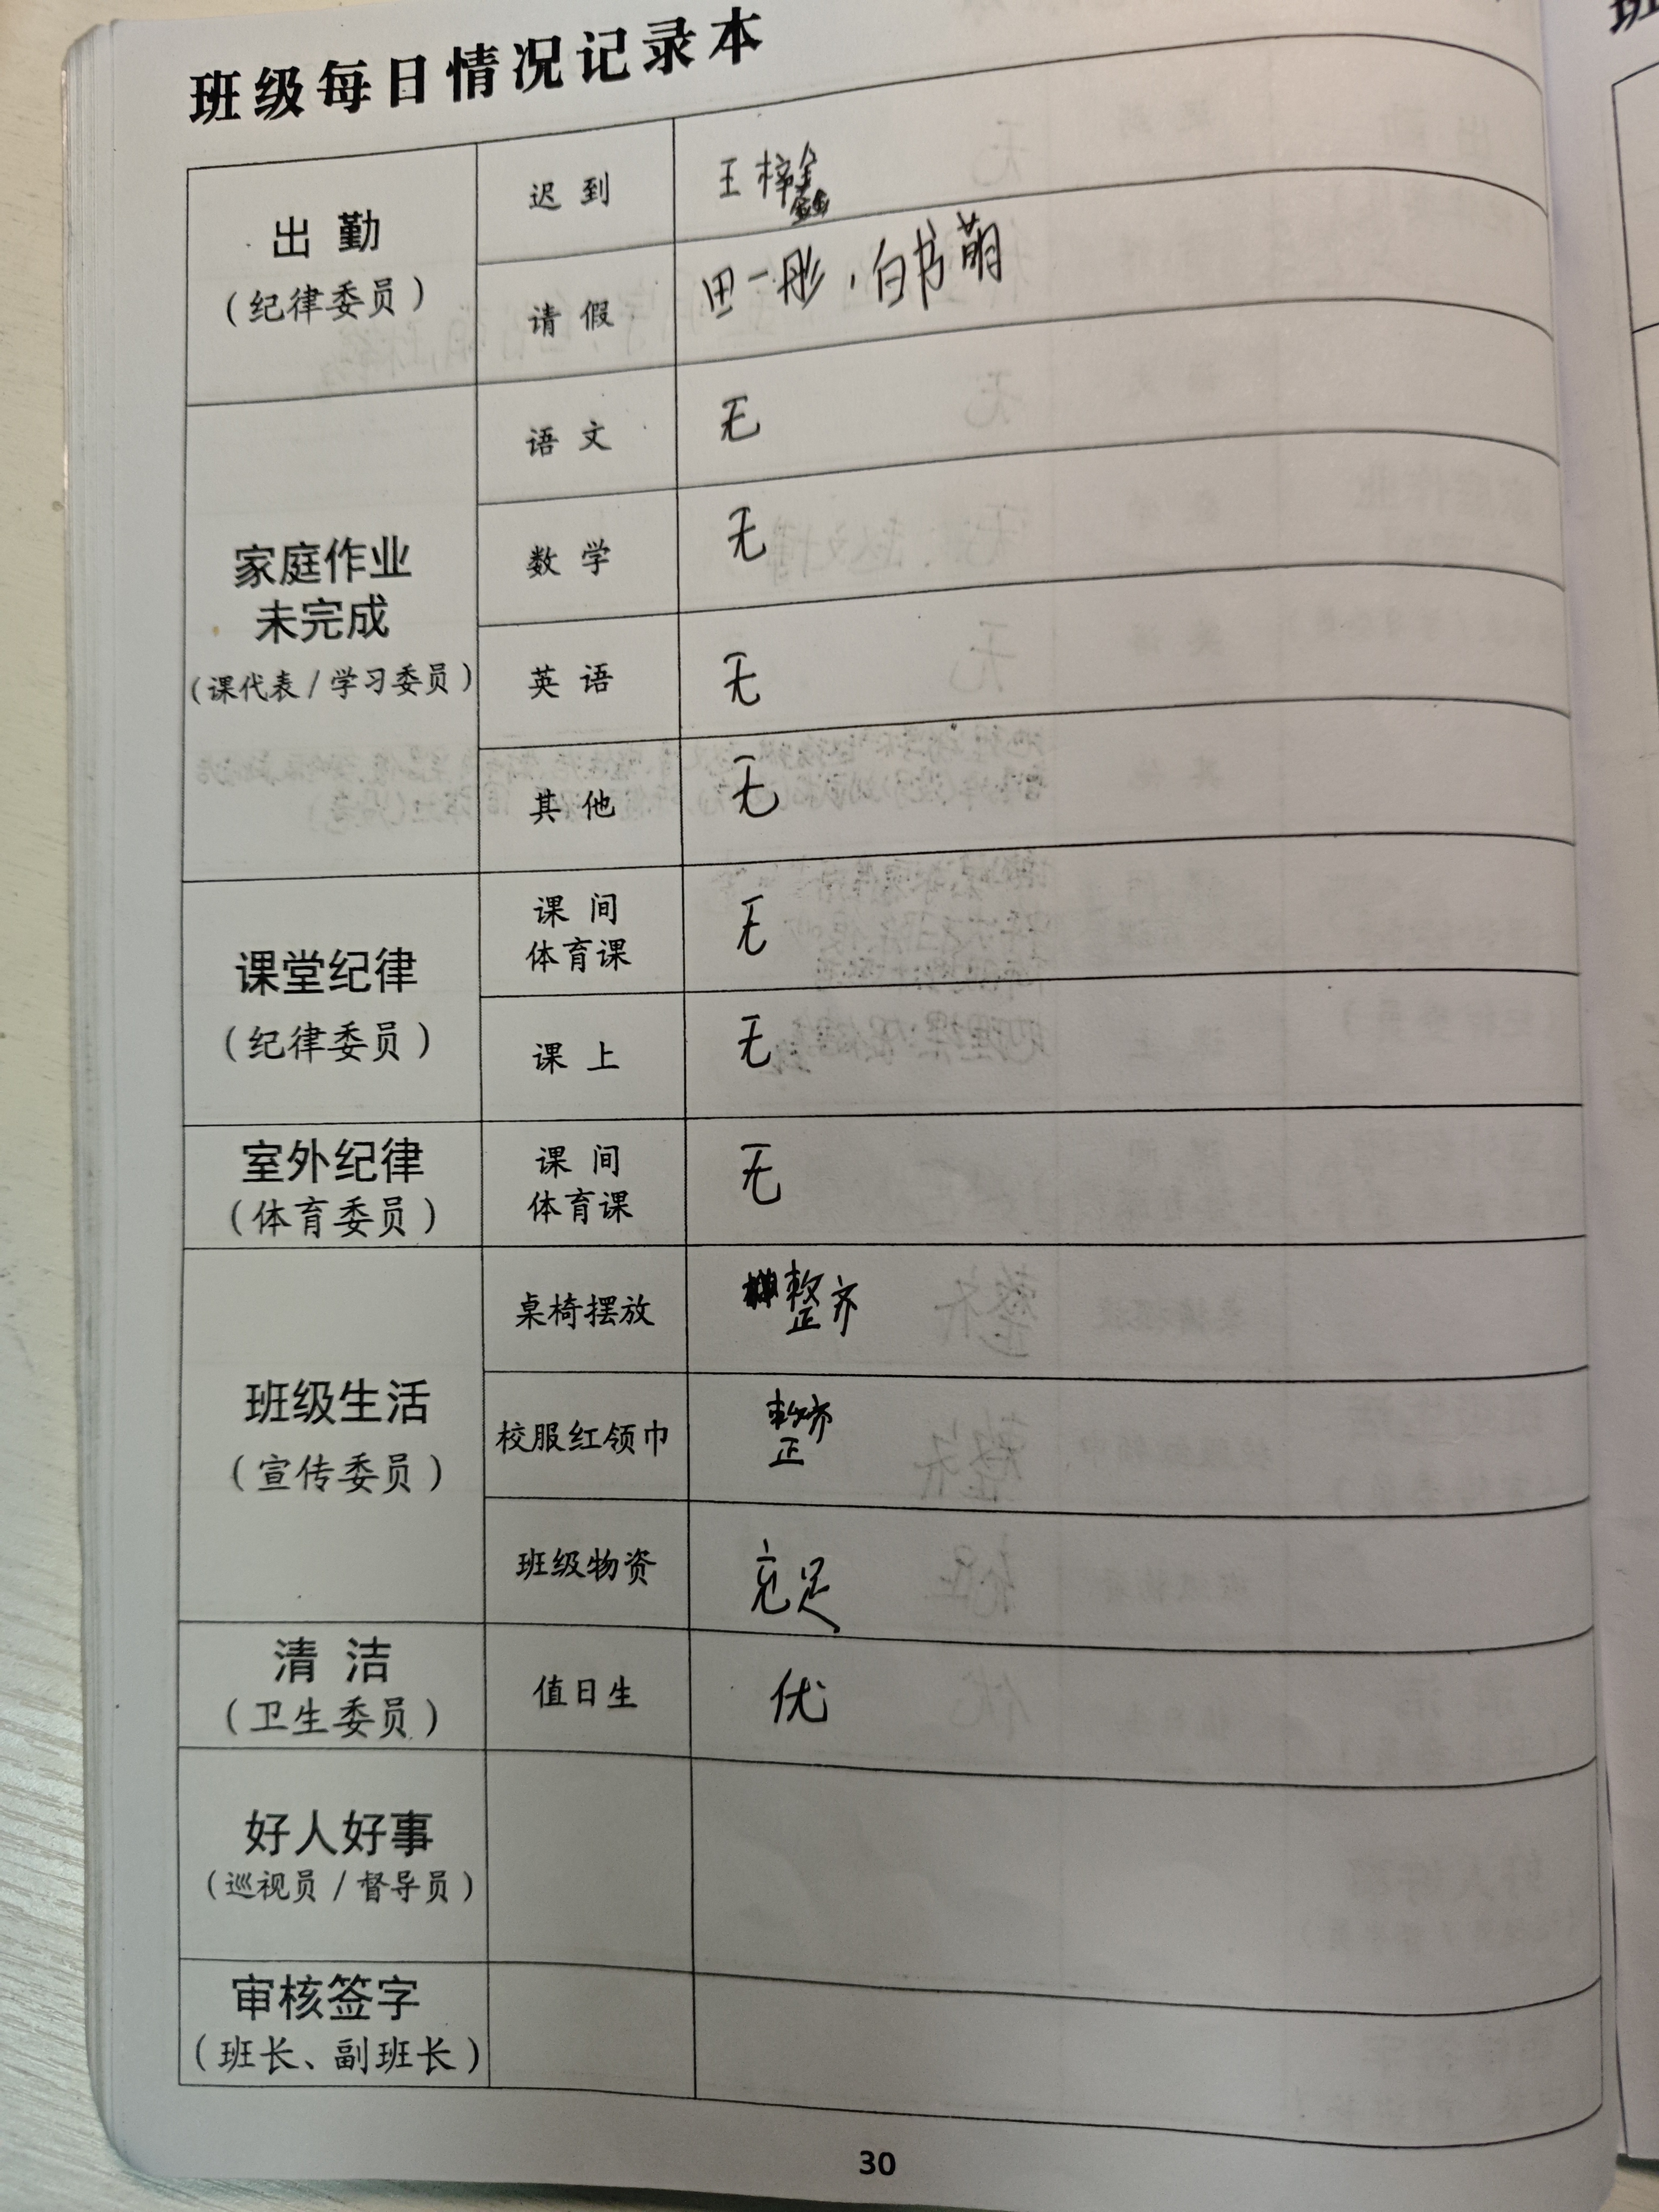 班级每日情况记录本
出勤
（纪律委员）
迟到
王梓鑫
请假
田一彤，白书萌
家庭作业
未完成
（课代表/学习委员）
语文
无
数学
无
英语
无
其他
无
课堂纪律
（纪律委员）
课间
体育课
无
课上
无
室外纪律
（体育委员）
课间
体育课
无
班级生活
（宣传委员）
桌椅摆放
整齐
校服红领巾
整齐
班级物资
充足
清洁
（卫生委员）
值日生
优
好人好事
（巡视员/督导员）
审核签字
（班长、副班长）
30